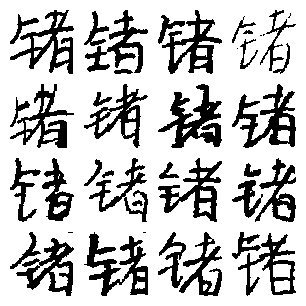 锗锗锗锗
锗锗锗锗
锗锗锗锗
锗锗锗锗